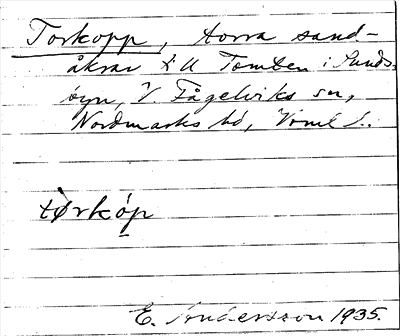 Torkopp, torra sand-
åkrar t. u Tomten i Sunds-
byn, V. Fågelviks sn,
Nordmarks hd, Vrml l.
tørkóp
E. Andersson 1935.